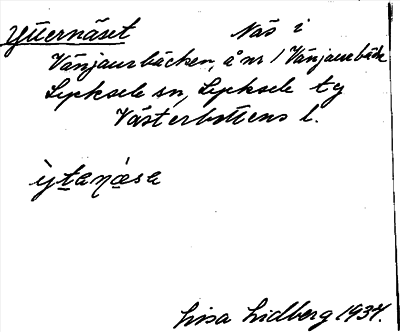 Ytternäset Näs i
Vänjaurbäcken, å nr 1 Vänjaurbäck
Lycksele sn, Lycksele tg
Västerbottens l.
ỳtanǽsə
Lisa Lidberg 1937.